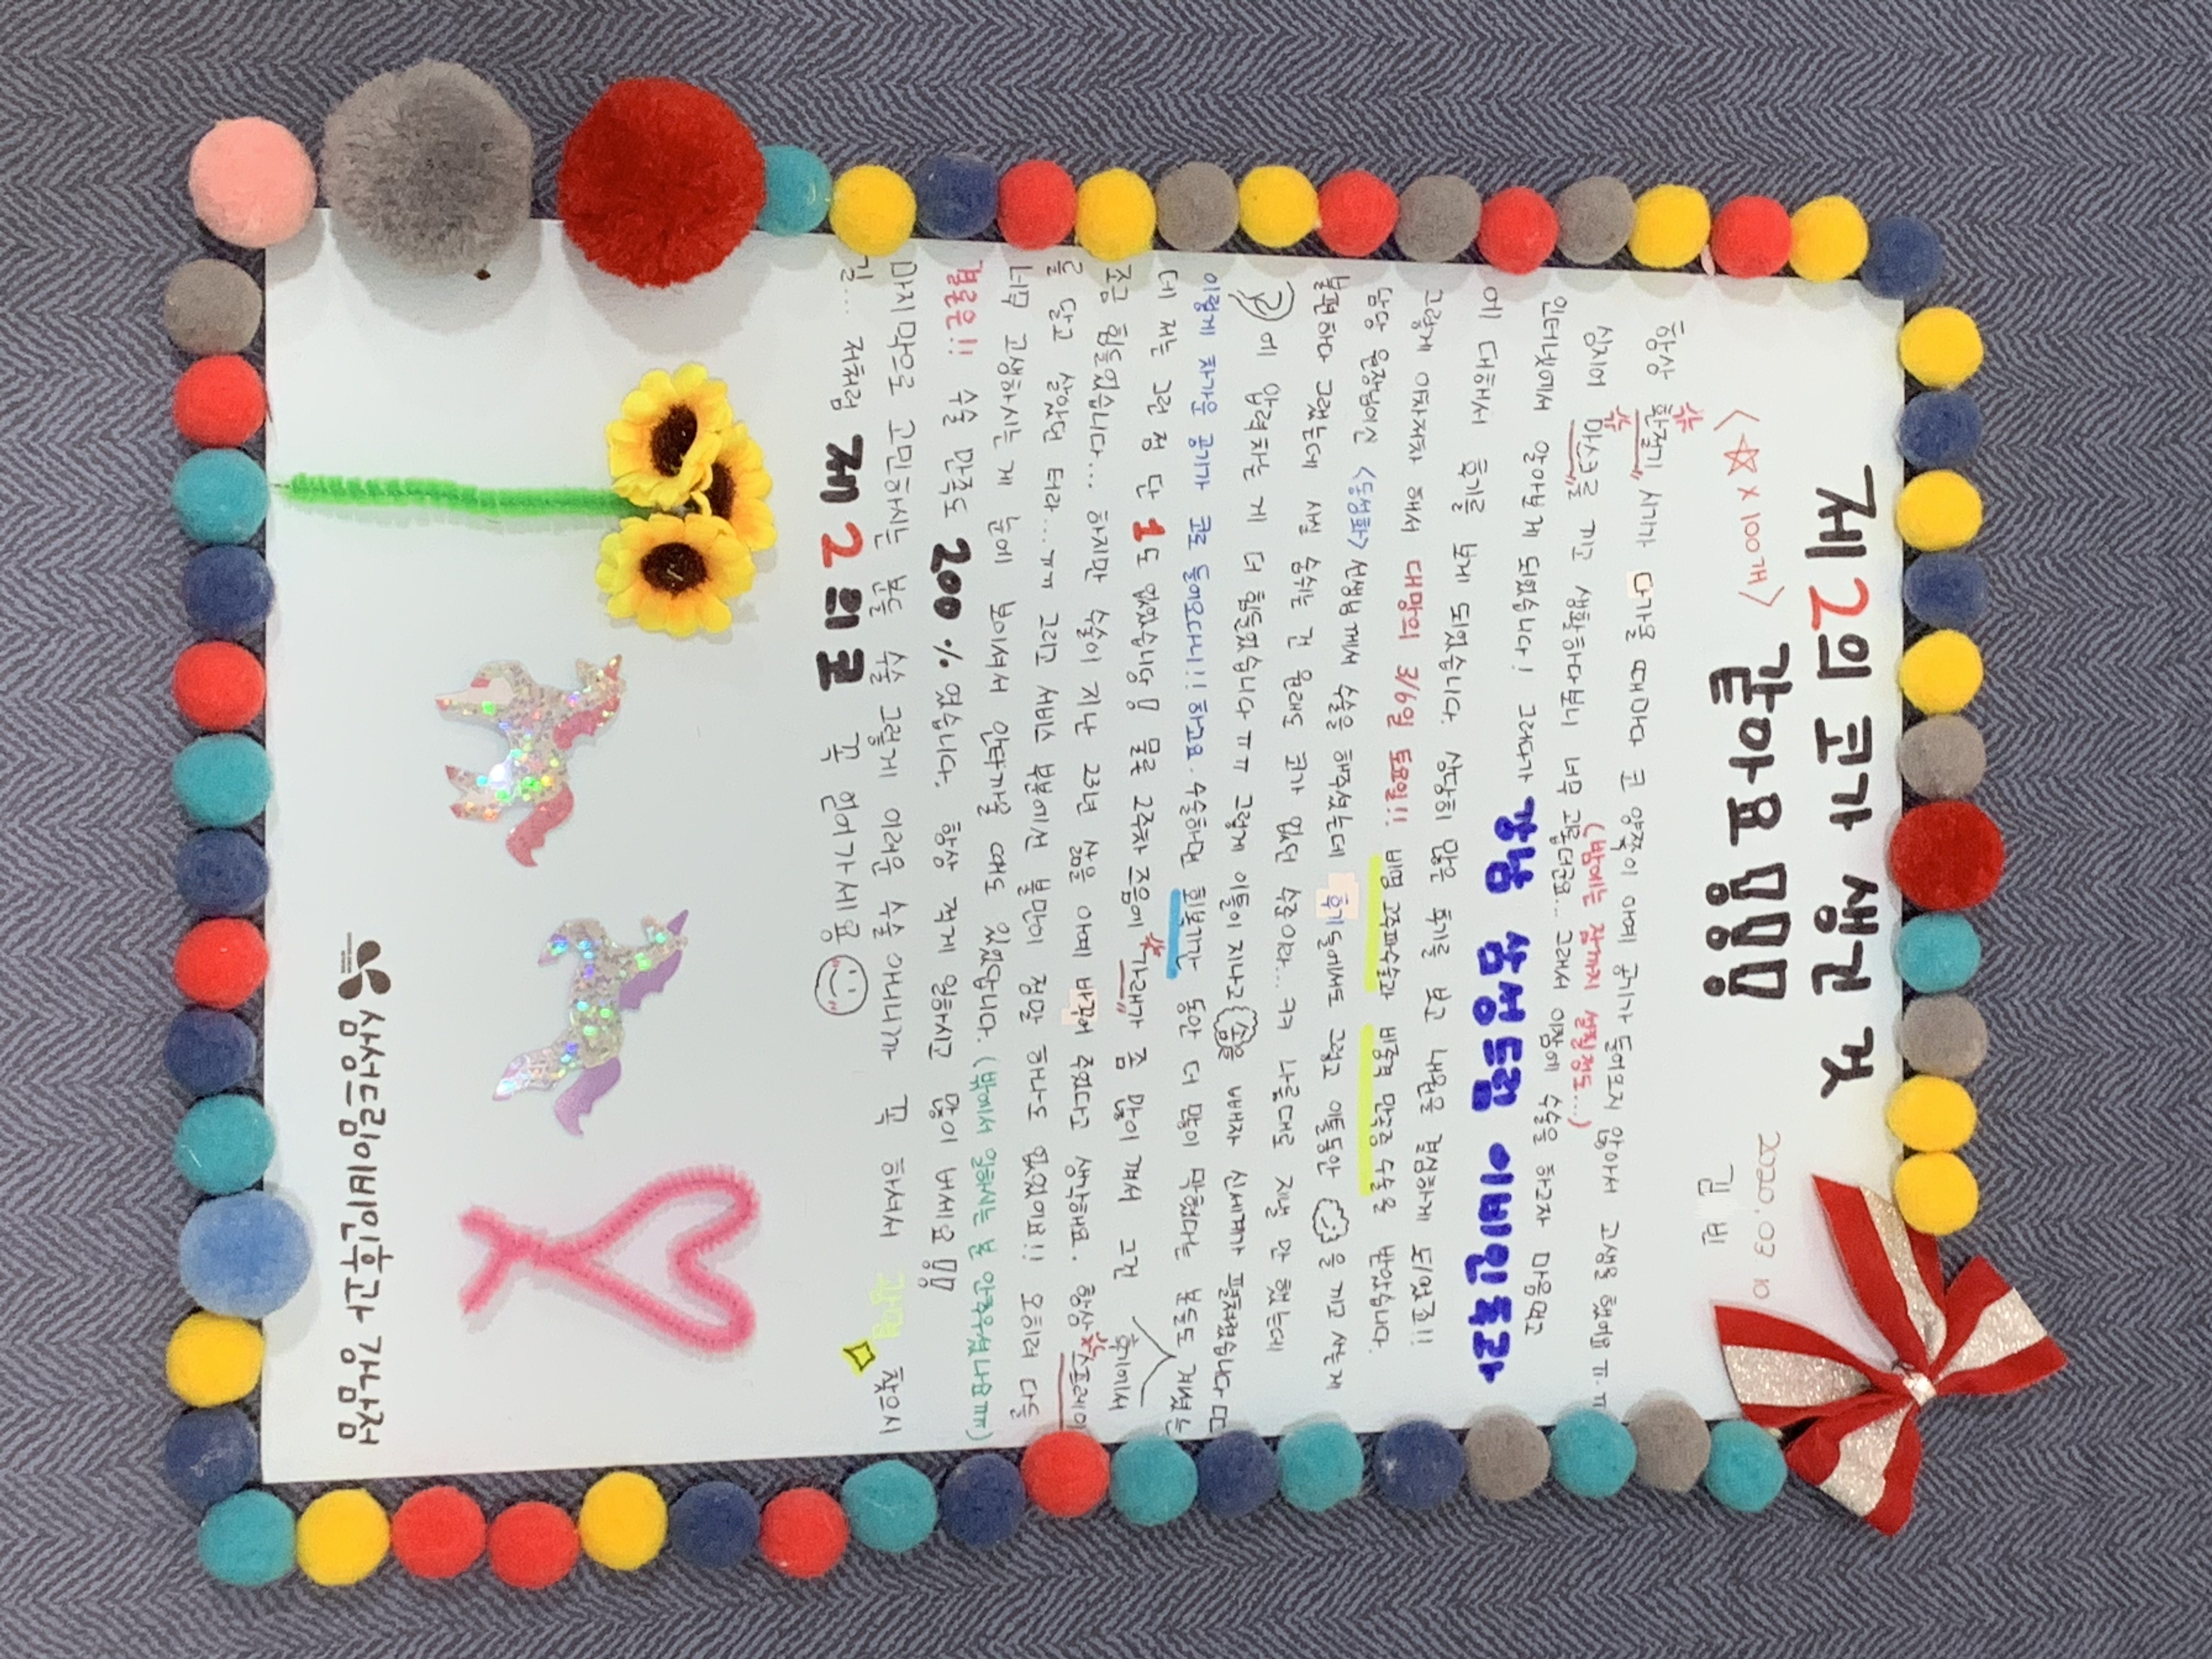 제2의 코가 생긴 것
<☆ x 100개> 같아요!!!
2020.03.10
김 빈
항상 환절기 시기가 다가올 때마다 코 양쪽이 아예 공기가 들어오지 않아서 고생을 했어요 ㅠ.ㅠ
(밤에는 잠까지 설칠정도...)
심지어 마스크를 끼고 생활하다보니 너무 괴롭더군요... 그래서 이참에 수술을 하고자 마음먹고
인터넷에서 알아보게 되었습니다! 그러다가 강남 삼성드림 이비인후과
에 대해서 후기를 보게 되었습니다. 상당히 많은 후기를 보고 내원을 결심하게 되었죠!!
그렇게 이차저차 해서 대망의 3/6일 토요일!! 비염 고주파수술과 비중격 만곡증 수술을 받았습니다.
담당 원장님이신 <동성화> 선생님께서 수술을 해주셨는데 후기들에서도 그렇고 이틀동안 을 끼고 사는게
불편하다 그랬는데 사실 숨쉬는 건 원래도 코가 없던 수준이라... ㅋㅋ 나름대로 지낼 만 했는데
에 압력차는 게 더 힘들었습니다 ㅠㅠ 그렇게 이틀이 지나고 솜을 빼자 신세계가 펼쳐졌습니다 ㄷㄷ
이렇게 차가운 공기가 코로 들어오다니!! 하고요. 수술하면 회복기간 동안 더 많이 막혔다는 분들도 계셨는
데 저는 그런 점 단 1도 없었습니당! 물론 2주차 즈음에 가래가 좀 많이 껴서 그건 후기에서
조금 힘들었습니다... 하지만 수술이 지난 23년 삶을 아예 바꾸어 주었다고 생각해요. 항상 스프레이
를 달고 살았던 터라...ㅠㅠ 그리고 서비스 부분에선 불만이 정말 하나도 없었어요!! 오히려 다들
너무 고생하시는 게 눈에 보이셔서 안타까울 때도 있었답니다. (밖에서 일하시는 분 안추우셨나요ㅠㅠ)
결론은!! 수술 만족도 200%였습니다. 항상 적게 일하시고 많이 버세요!!
마지막으로 고민하시는 분들 수술 그렇게 어려운 수술 아니니까 꼭 하셔서 광명 찾으시
길... 저처럼 제2의 코 꼭 얻어가세용
삼성드림이비인후과 강남점